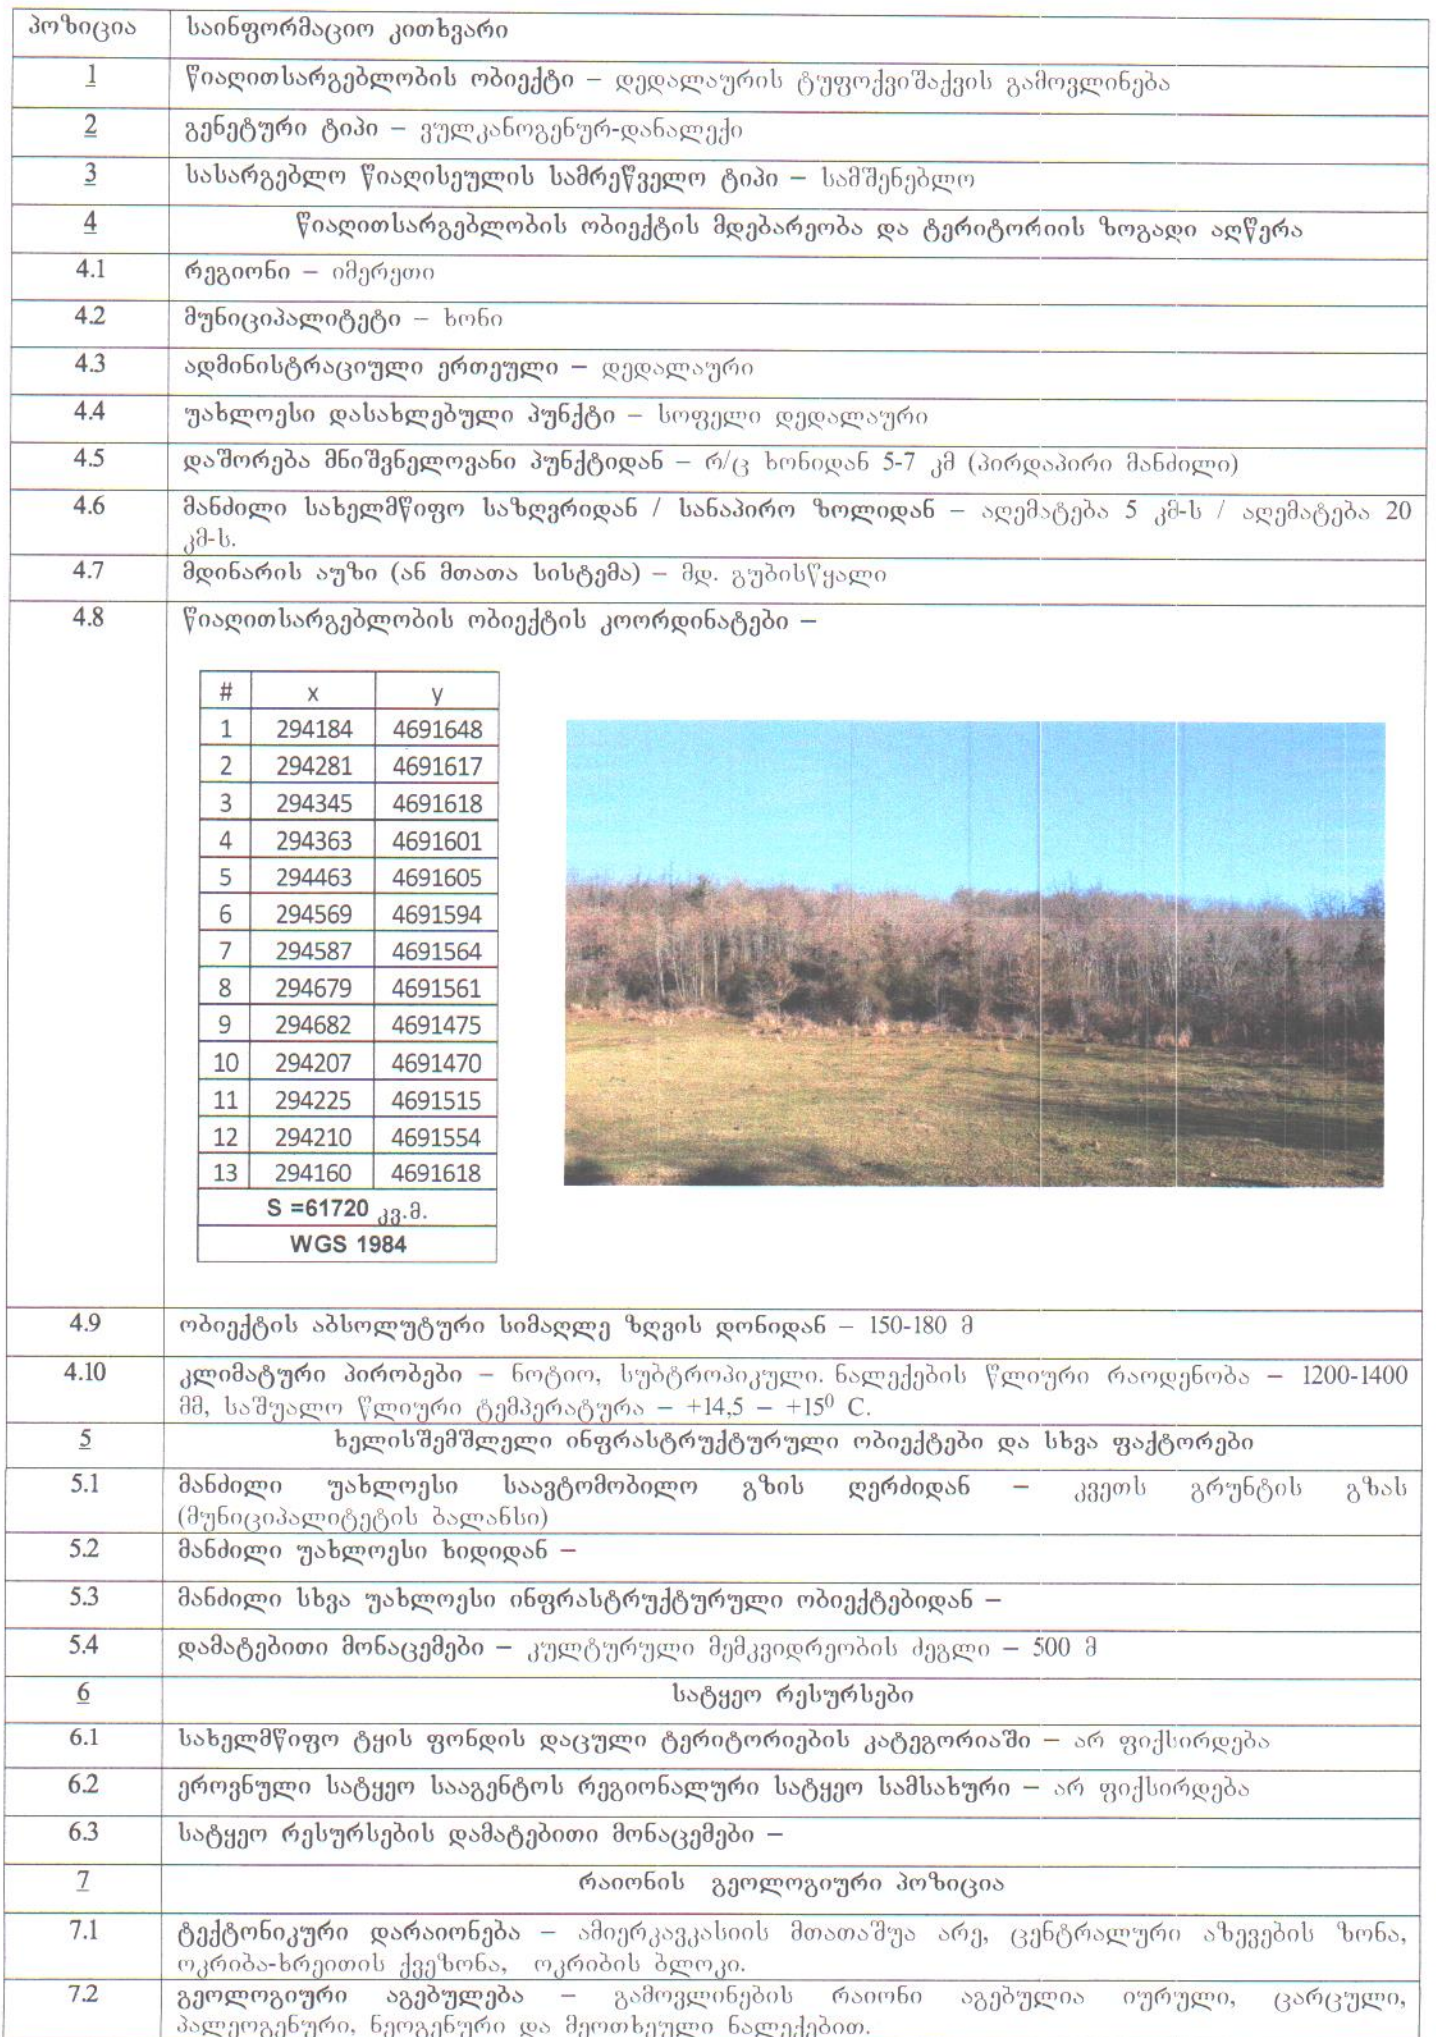 პოზიცია საინფორმაციო კითხვარი
1 წიაღითსარგებლობის ობიექტი – დედალაურის ტუფოქვიშაქვის გამოვლინება
2 გენეტური ტიპი – ვულკანოგენურ-დანალექი
3 სასარგებლო წიაღისეულის სამრეწველო ტიპი – სამშენებლო
4 წიაღითსარგებლობის ობიექტის მდებარეობა და ტერიტორიის ზოგადი აღწერა
4.1 რეგიონი – იმერეთი
4.2 მუნიციპალიტეტი – ხონი
4.3 ადმინისტრაციული ერთეული – დედალაური
4.4 უახლოესი დასახლებული პუნქტი – სოფელი დედალაური
4.5 დაშორება მნიშვნელოვანი პუნქტიდან – რ/ც ხონიდან 5-7 კმ (პირდაპირი მანძილი)
4.6 მანძილი სახელმწიფო საზღვრიდან / სანაპირო ზოლიდან – აღემატება 5 კმ-ს / აღემატება 20
კმ-ს.
4.7 მდინარის აუზი (ან მთათა სისტემა) – მდ. გუბისწყალი
4.8 წიაღითსარგებლობის ობიექტის კოორდინატები –
# x y
1 294184 4691648
2 294281 4691617
3 294345 4691618
4 294363 4691601
5 294463 4691605
6 294569 4691594
7 294587 4691564
8 294679 4691561
9 294682 4691475
10 294207 4691470
11 294225 4691515
12 294210 4691554
13 294160 4691618
S =61720 კვ.მ.
WGS 1984
4.9 ობიექტის აბსოლუტური სიმაღლე ზღვის დონიდან – 150-180 მ
4.10 კლიმატური პირობები – ნოტიო, სუბტროპიკული. ნალექების წლიური რაოდენობა – 1200-1400
მმ, საშუალო წლიური ტემპერატურა – +14,5 – +15⁰ C.
5 ხელისშემშლელი ინფრასტრუქტურული ობიექტები და სხვა ფაქტორები
5.1 მანძილი უახლოესი საავტომობილო გზის ღერძიდან – კვეთს გრუნტის გზას
(მუნიციპალიტეტის ბალანსი)
5.2 მანძილი უახლოესი ხიდიდან –
5.3 მანძილი სხვა უახლოესი ინფრასტრუქტურული ობიექტებიდან –
5.4 დამატებითი მონაცემები – კულტურული მემკვიდრეობის ძეგლი – 500 მ
6 სატყეო რესურსები
6.1 სახელმწიფო ტყის ფონდის დაცული ტერიტორიების კატეგორიაში – არ ფიქსირდება
6.2 ეროვნული სატყეო სააგენტოს რეგიონალური სატყეო სამსახური – არ ფიქსირდება
6.3 სატყეო რესურსების დამატებითი მონაცემები –
7 რაიონის გეოლოგიური პოზიცია
7.1 ტექტონიკური დარაიონება – ამიერკავკასიის მთათაშუა არე, ცენტრალური აზევების ზონა,
ოკრიბა-ხრეითის ქვეზონა, ოკრიბის ბლოკი.
7.2 გეოლოგიური აგებულება – გამოვლინების რაიონი აგებულია იურული, ცარცული,
პალეოგენური, ნეოგენური და მეოთხეული ნალექებით.